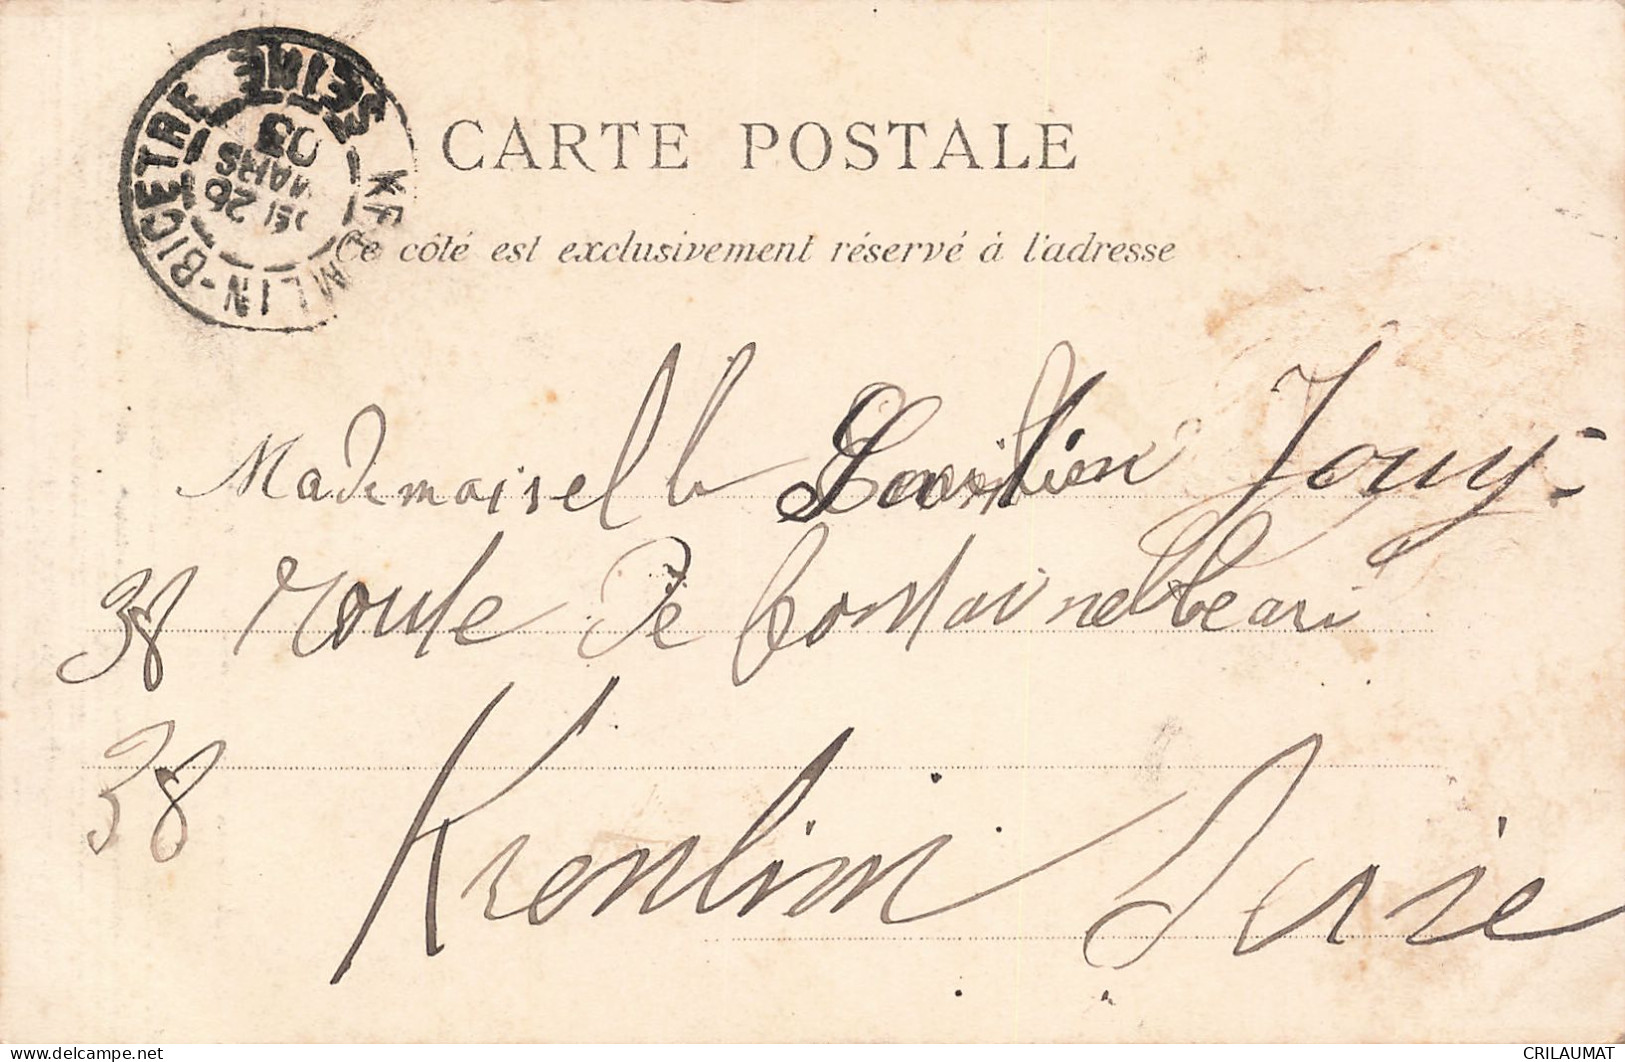 KREMLIN-BICETRE SEINE
26
MARS
03
CARTE POSTALE
Ce côté est exclusivement réservé à l'adresse
Mademoisell Jouy
38 Route de fontainebleau
38 Krenlim
CRILAUMAT